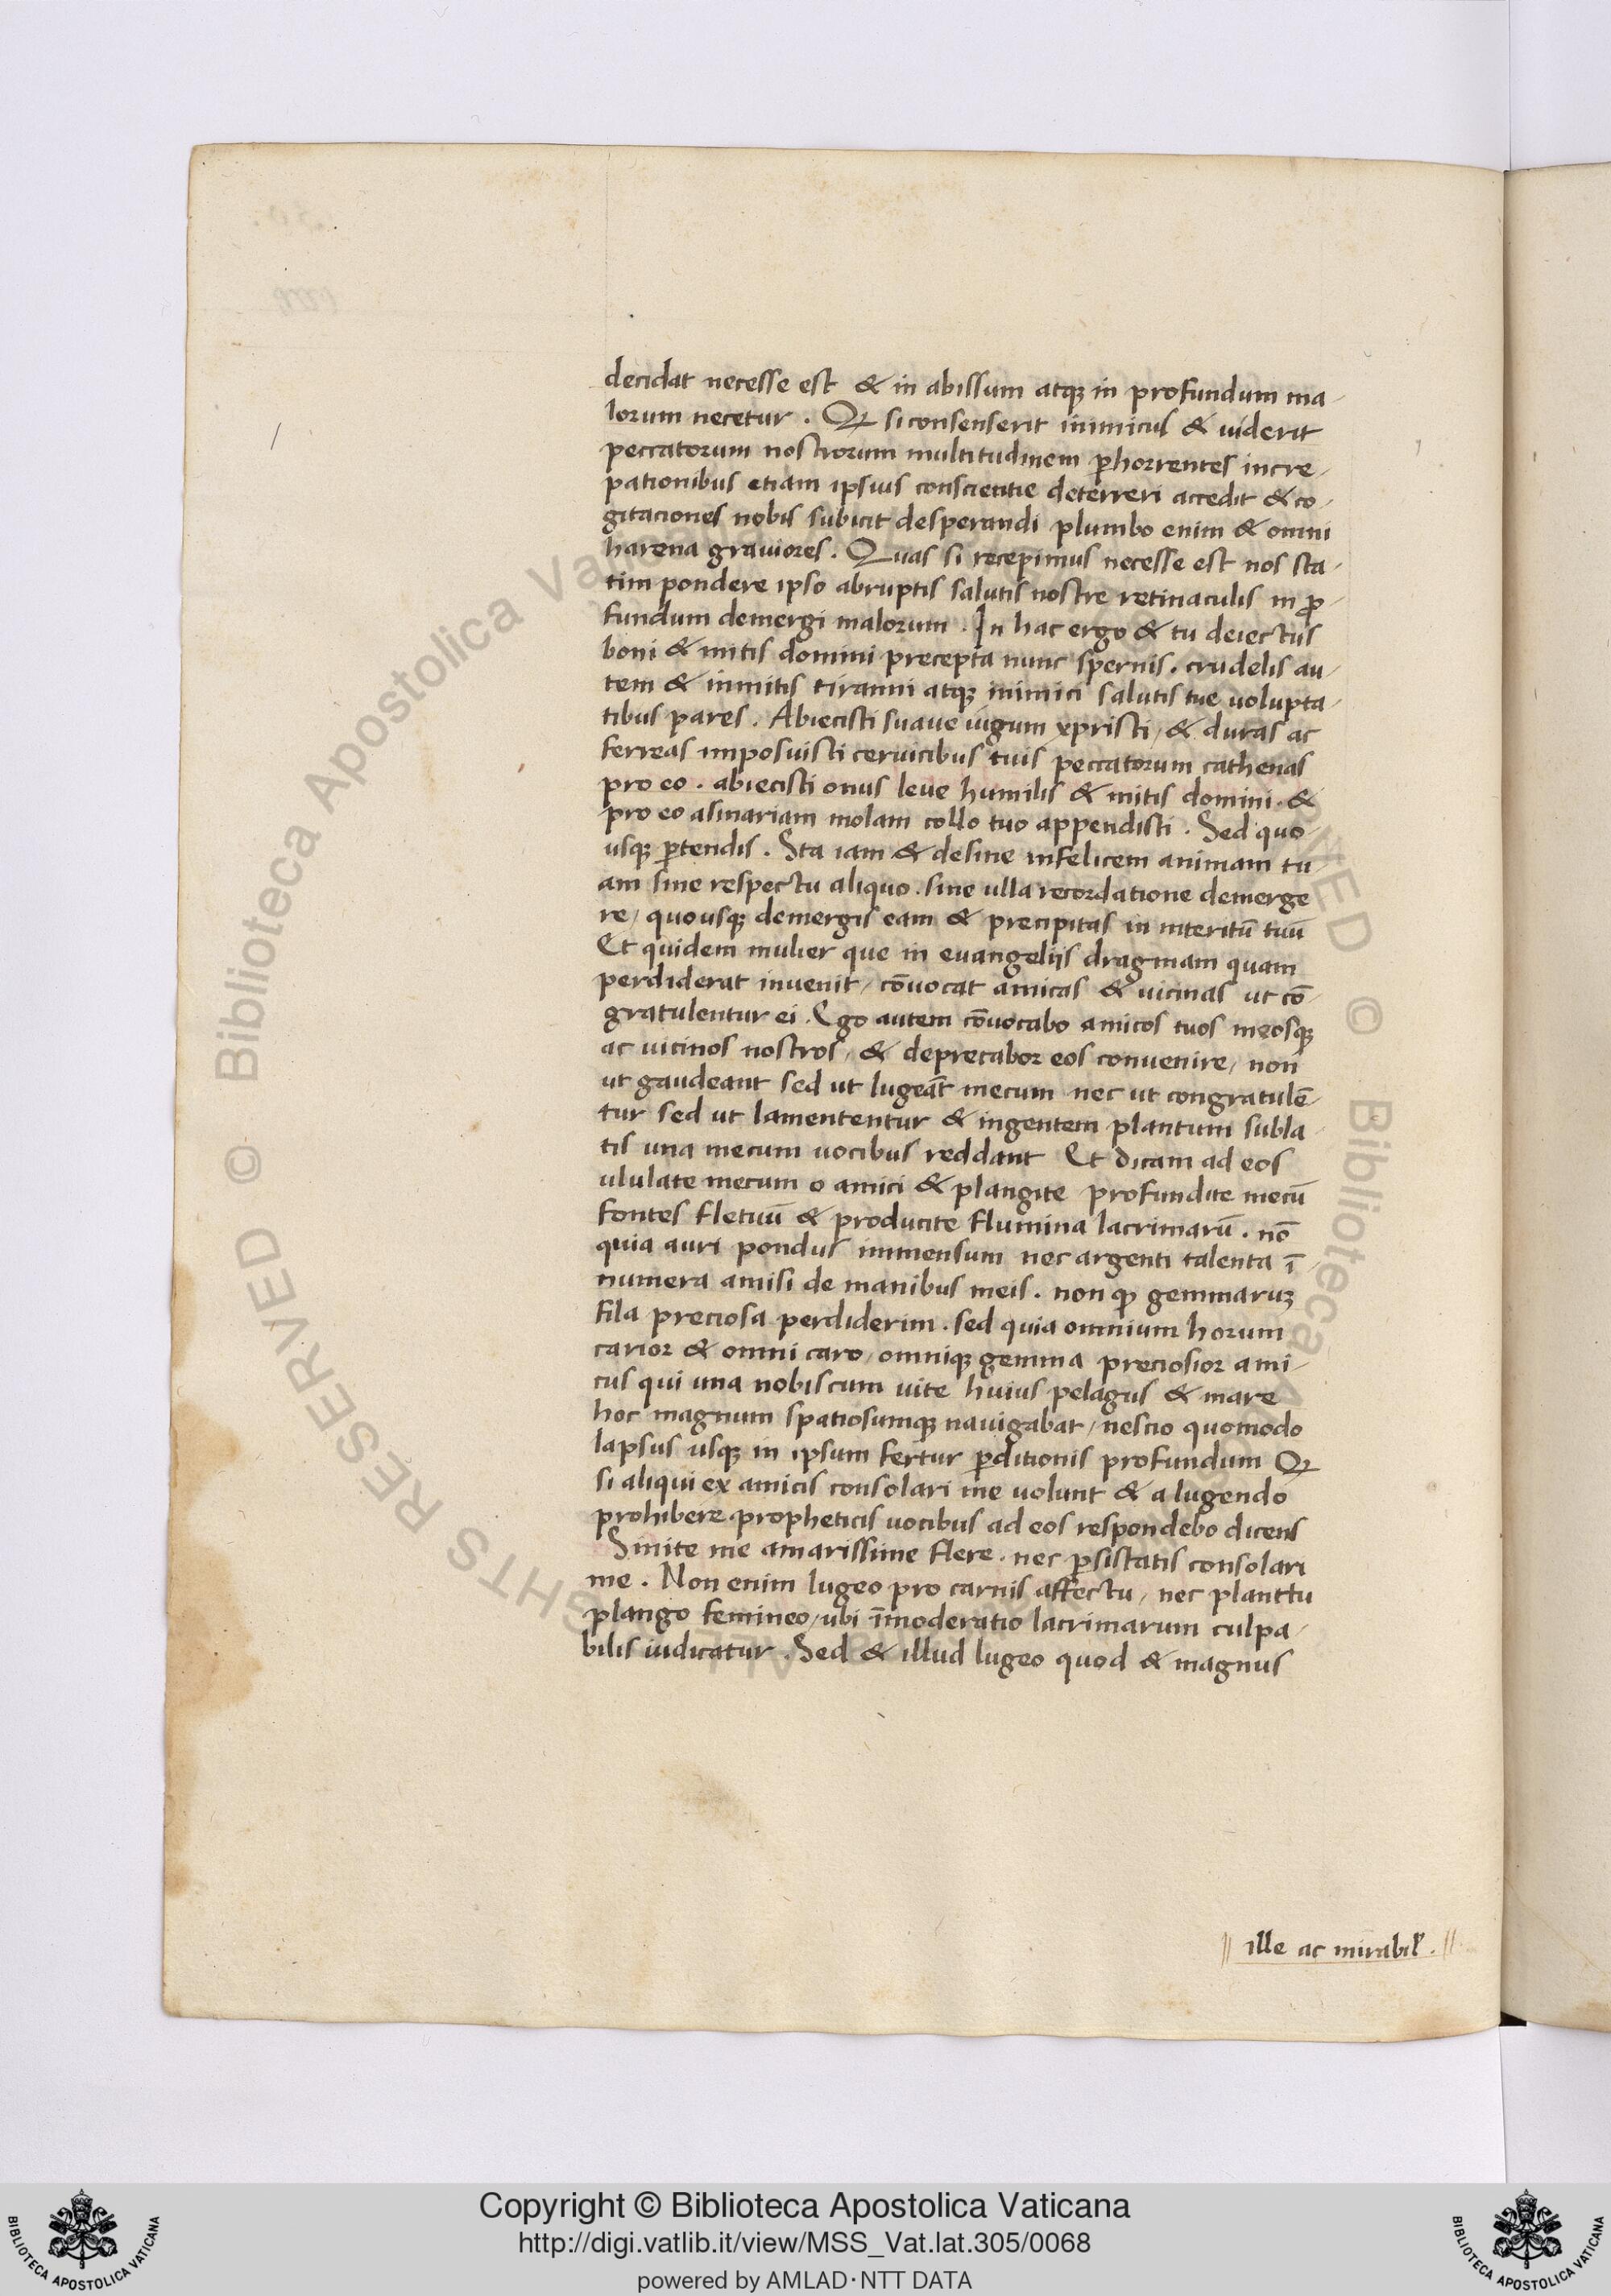 decidat necesse est & in abissum atqꝫ in profundum ma-
lorum necetur. Qꝫ si consenserit inimicus & viderit
peccatorum nostrorum multitudinem ꝑhorrentes incre-
pationibus etiam ipsius conscientie deterreri accedit & co-
gitaciones nobis subicit desperandi plumbo enim & omni
harena graviores. Quas si recepimus necesse est nos sta-
tim pondere ipso abruptis salutis nostre retinaculis in ꝓ-
fundum demergi malorum. In hac ergo & tu deiectus
boni & mitis domini precepta nunc spernis. crudelis au-
tem & inmitis tiranni atqꝫ inimici salutis tue volupta-
tibus pares. Abiecisti suave iugum xpristi, & duras ac
ferreas imposuisti cervicibus tuis peccatorum cathenas
pro eo. abiecisti onus leve humilis & mitis domini. &
pro eo asinariam molam collo tuo appendisti. Sed quo-
usqꝫ ꝑtendis. Sta iam & desine infelicem animam tu-
am sine respectu aliquo. sine ulla recordatione demerge
re, quousqꝫ demergis eam & precipitas in interitū tuū
Et quidem mulier que in evangeliis dragmam quam
perdiderat invenit, cōvocat amicas & vicinas ut cō-
gratulentur ei. Ego autem cōvocabo amicos tuos meosqꝫ
ac vicinos nostros, & deprecabor eos convenire, non
ut gaudeant sed ut lugeāt mecum nec ut congratulē-
tur sed ut lamententur & ingentem plantum subla-
tis una mecum vocibus reddant Et dicam ad eos
ululate mecum o amici & plangite profundite mecū
fontes fletuū & producite flumina lacrimarū. nō
quia auri pondus immensum nec argenti talenta ī-
numera amisi de manibus meis. non qꝫ gemmaruꝫ
fila preciosa perdiderim. sed quia omnium horum
carior & omni caro, omniqꝫ gemma preciosior ami-
cus qui una nobiscum vite huius pelagus & mare
hoc magnum spatiosumqꝫ navigabat, nescio quomodo
lapsus usqꝫ in ipsum fertur ꝑditionis profundum Qꝫ
si aliqui ex amicis consolari me volunt & a lugendo
prohibere propheticis vocibus ad eos respondebo dicens
Sinite me amarissime flere. nec ꝑsistatis consolari
me. Non enim lugeo pro carnis affectu, nec planttu
plango femineo, ubi īmoderatio lacrimarum culpa-
bilis iudicatur. Sed & illud lugeo quod & magnus
ille ac mirabil'.
Copyright © Biblioteca Apostolica Vaticana
http://digi.vatlib.it/view/MSS_Vat.lat.305/0068
powered by AMLAD·NTT DATA